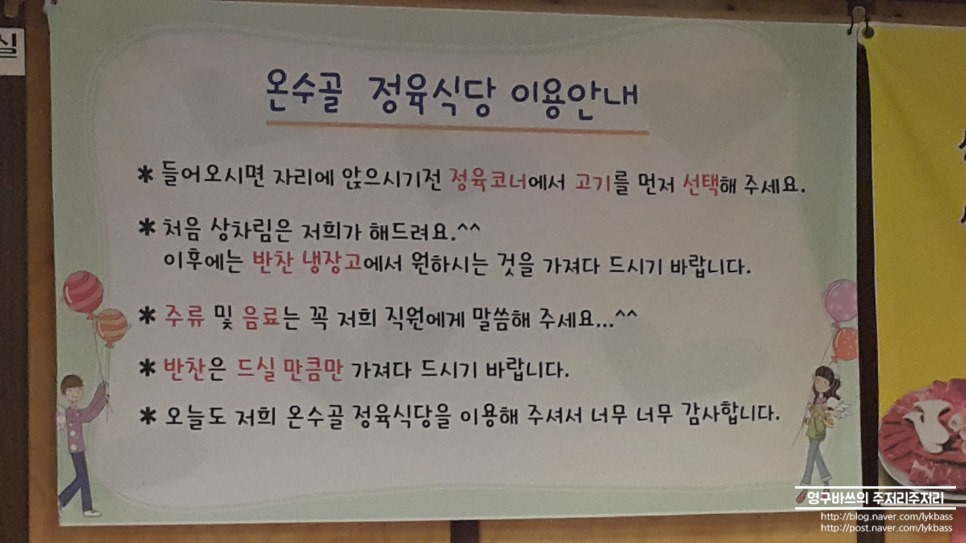 실
온수골 정육식당 이용안내
* 들어오시면 자리에 앉으시기전 정육코너에서 고기를 먼저 선택해 주세요.
* 처음 상차림은 저희가 해드려요.^^
이후에는 반찬 냉장고에서 원하시는 것을 가져다 드시기 바랍니다.
* 주류 및 음료는 꼭 저희 직원에게 말씀해 주세요...^^
* 반찬은 드실 만큼만 가져다 드시기 바랍니다.
* 오늘도 저희 온수골 정육식당을 이용해 주셔서 너무 너무 감사합니다.
영구바쓰의 주저리주저리
http://blog.naver.com/lykbass
http://post.naver.com/lykbass